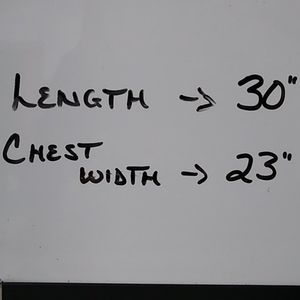 LENGTH -> 30"
CHEST
WIDTH -> 23"